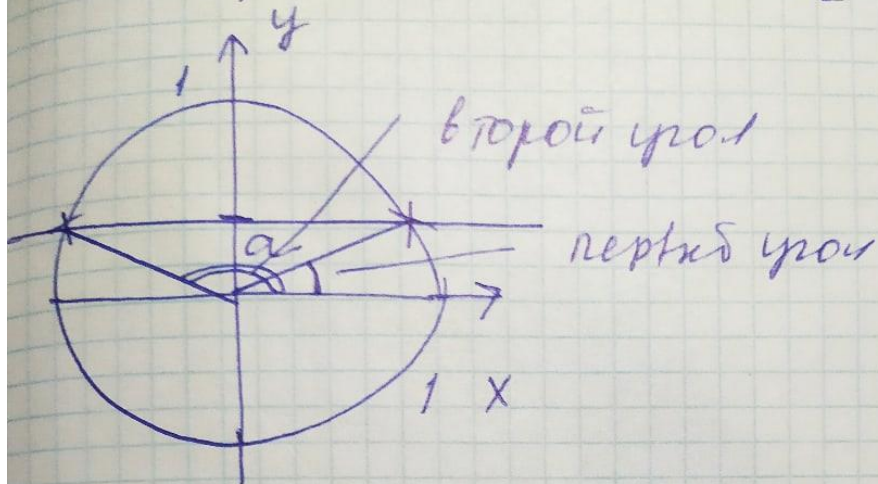 y
1
второй угол
a
первый угол
1 X